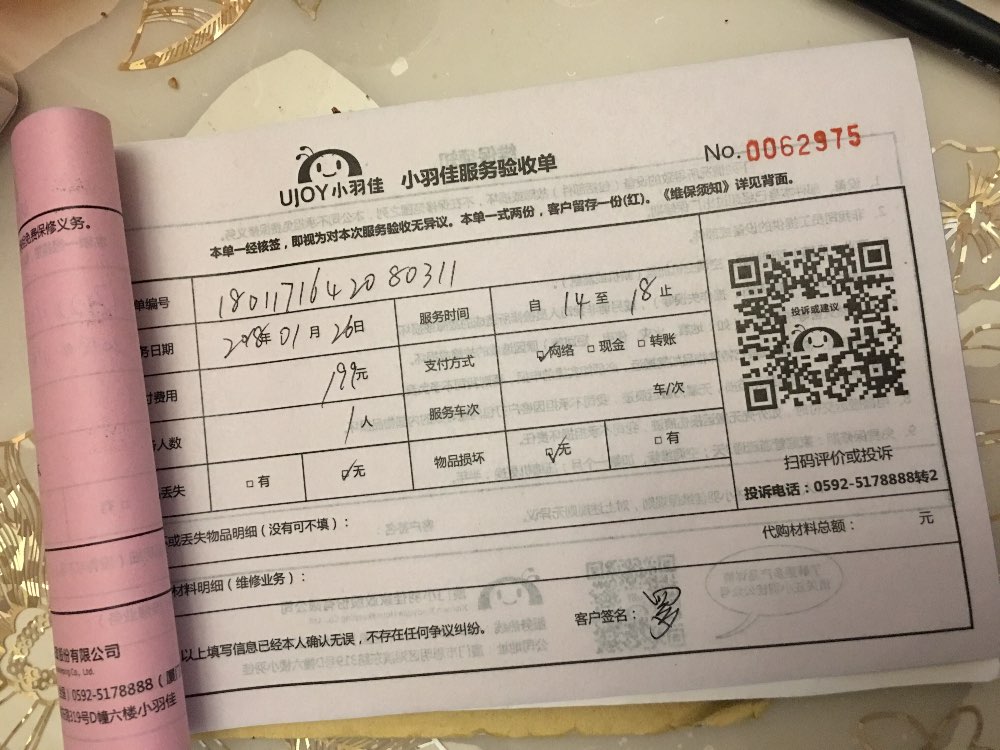 UJOY小羽佳 小羽佳服务验收单
No.0062975
本单一经核签，即视为对本次服务验收无异议。本单一式两份，客户留存一份(红)。《维保须知》详见背面。
单编号 1801171642080311
服务时间 自 14 至 18 止
务日期 2018年 01 月 26日
支付方式 网络 现金 转账
付费用 199元
服务车次 车/次
人数 1人
丢失 有 无
物品损坏 无 有
投诉或建议
扫码评价或投诉
投诉电话：0592-5178888转2
或丢失物品明细（没有可不填）：
代购材料总额： 元
材料明细（维修业务）：
以上填写信息已经本人确认无误，不存在任何争议纠纷。
客户签名：
免费保修义务。
股份有限公司
Co., Ltd.
0592-5178888（厦门
319号D幢六楼小羽佳